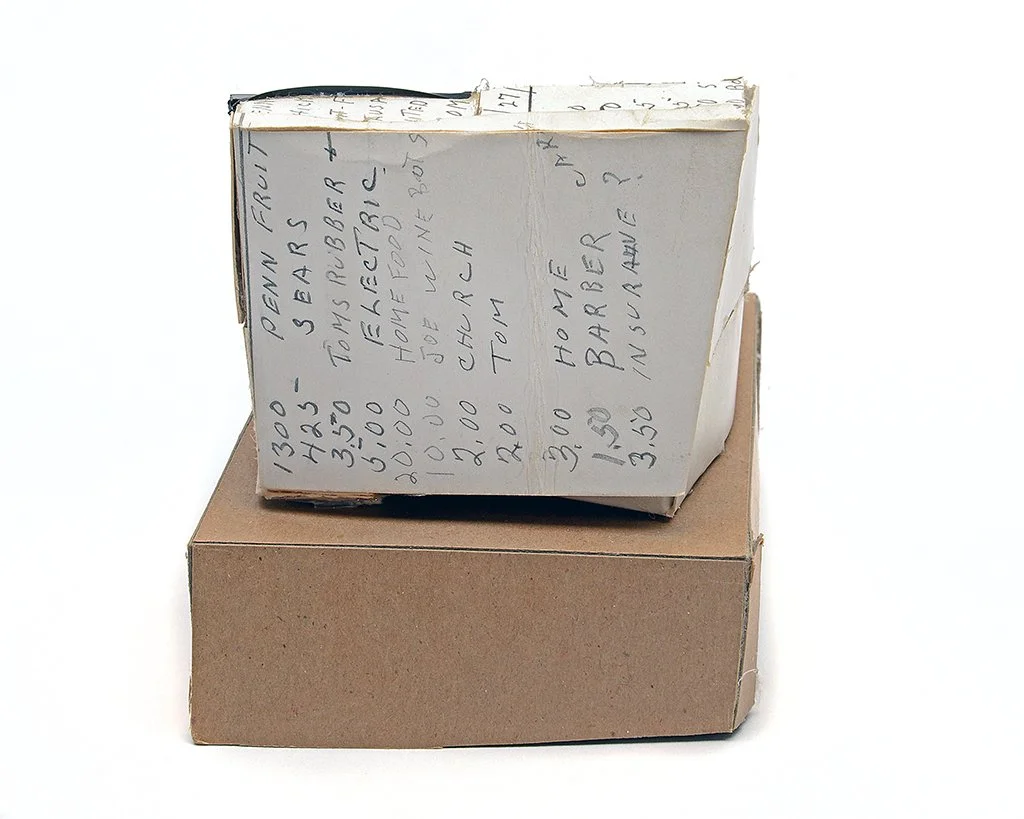 1300 PENN FRUIT
425- SEARS
3.50 TOMS RUBBER +
5.00 ELECTRIC
20.00 HOME FOOD
10.00 JOE WINE BOTS
2.00 CHURCH
2.00 TOM
3.00 HOME
1.50 BARBER
3.50 INSURANCE ?
271